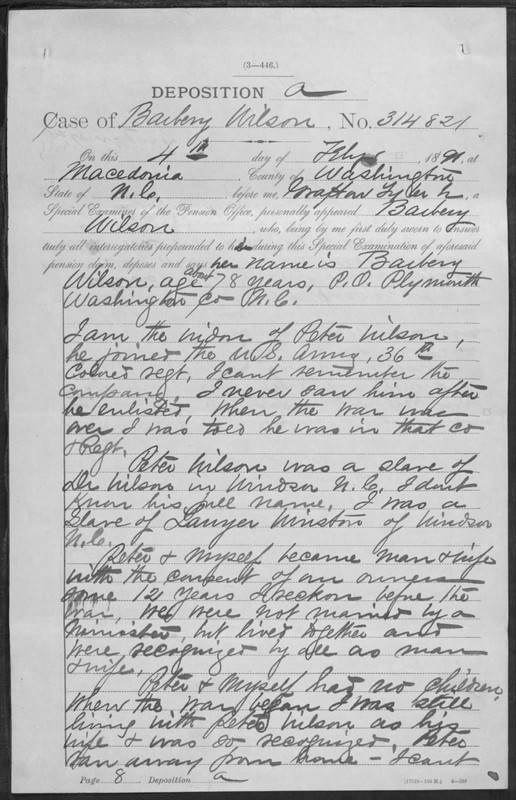 (3—446.)
DEPOSITION a
Case of Barbery Wilson, No. 314821
On this 4th day of Feby, 1891, at
Macedonia, County of Washington
State of N.C., before me, Grafton Tyler Jr, a
Special Examiner of the Pension Office, personally appeared Barbery
Wilson, who, being by me first duly sworn to answer
truly all interrogatories propounded to her during this Special Examination of aforesaid
pension claim, deposes and says: her name is Barbery
Wilson, age about 78 years, P.O. Plymouth
Washington Co N.C.
I am the widow of Peter Wilson,
he joined the U.S. Army, 36th
Colored regt, I cant remember the
company. I never saw him after
he enlisted, When the war was
over I was told he was in that co
& Regt.
Peter Wilson was a slave of
Dr Wilson in Windsor N.C. I dont
know his full name. I was a
slave of Lawyer Winston of Windsor
N.C.
Peter & myself became man & wife
with the consent of our owners
some 12 years I reckon before the
war, we were not married by a
minister, but lived together and
were recognized by all as man
& wife.
Peter & myself had no children,
When the war began I was still
living with Peter Wilson as his
wife & was so recognized, Peter
ran away from home – I cant
Page 8 Deposition a